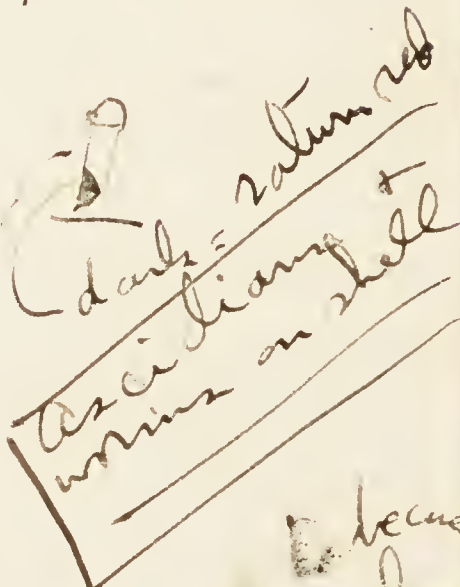 dark = saturn red
ascidians +
worms on shell